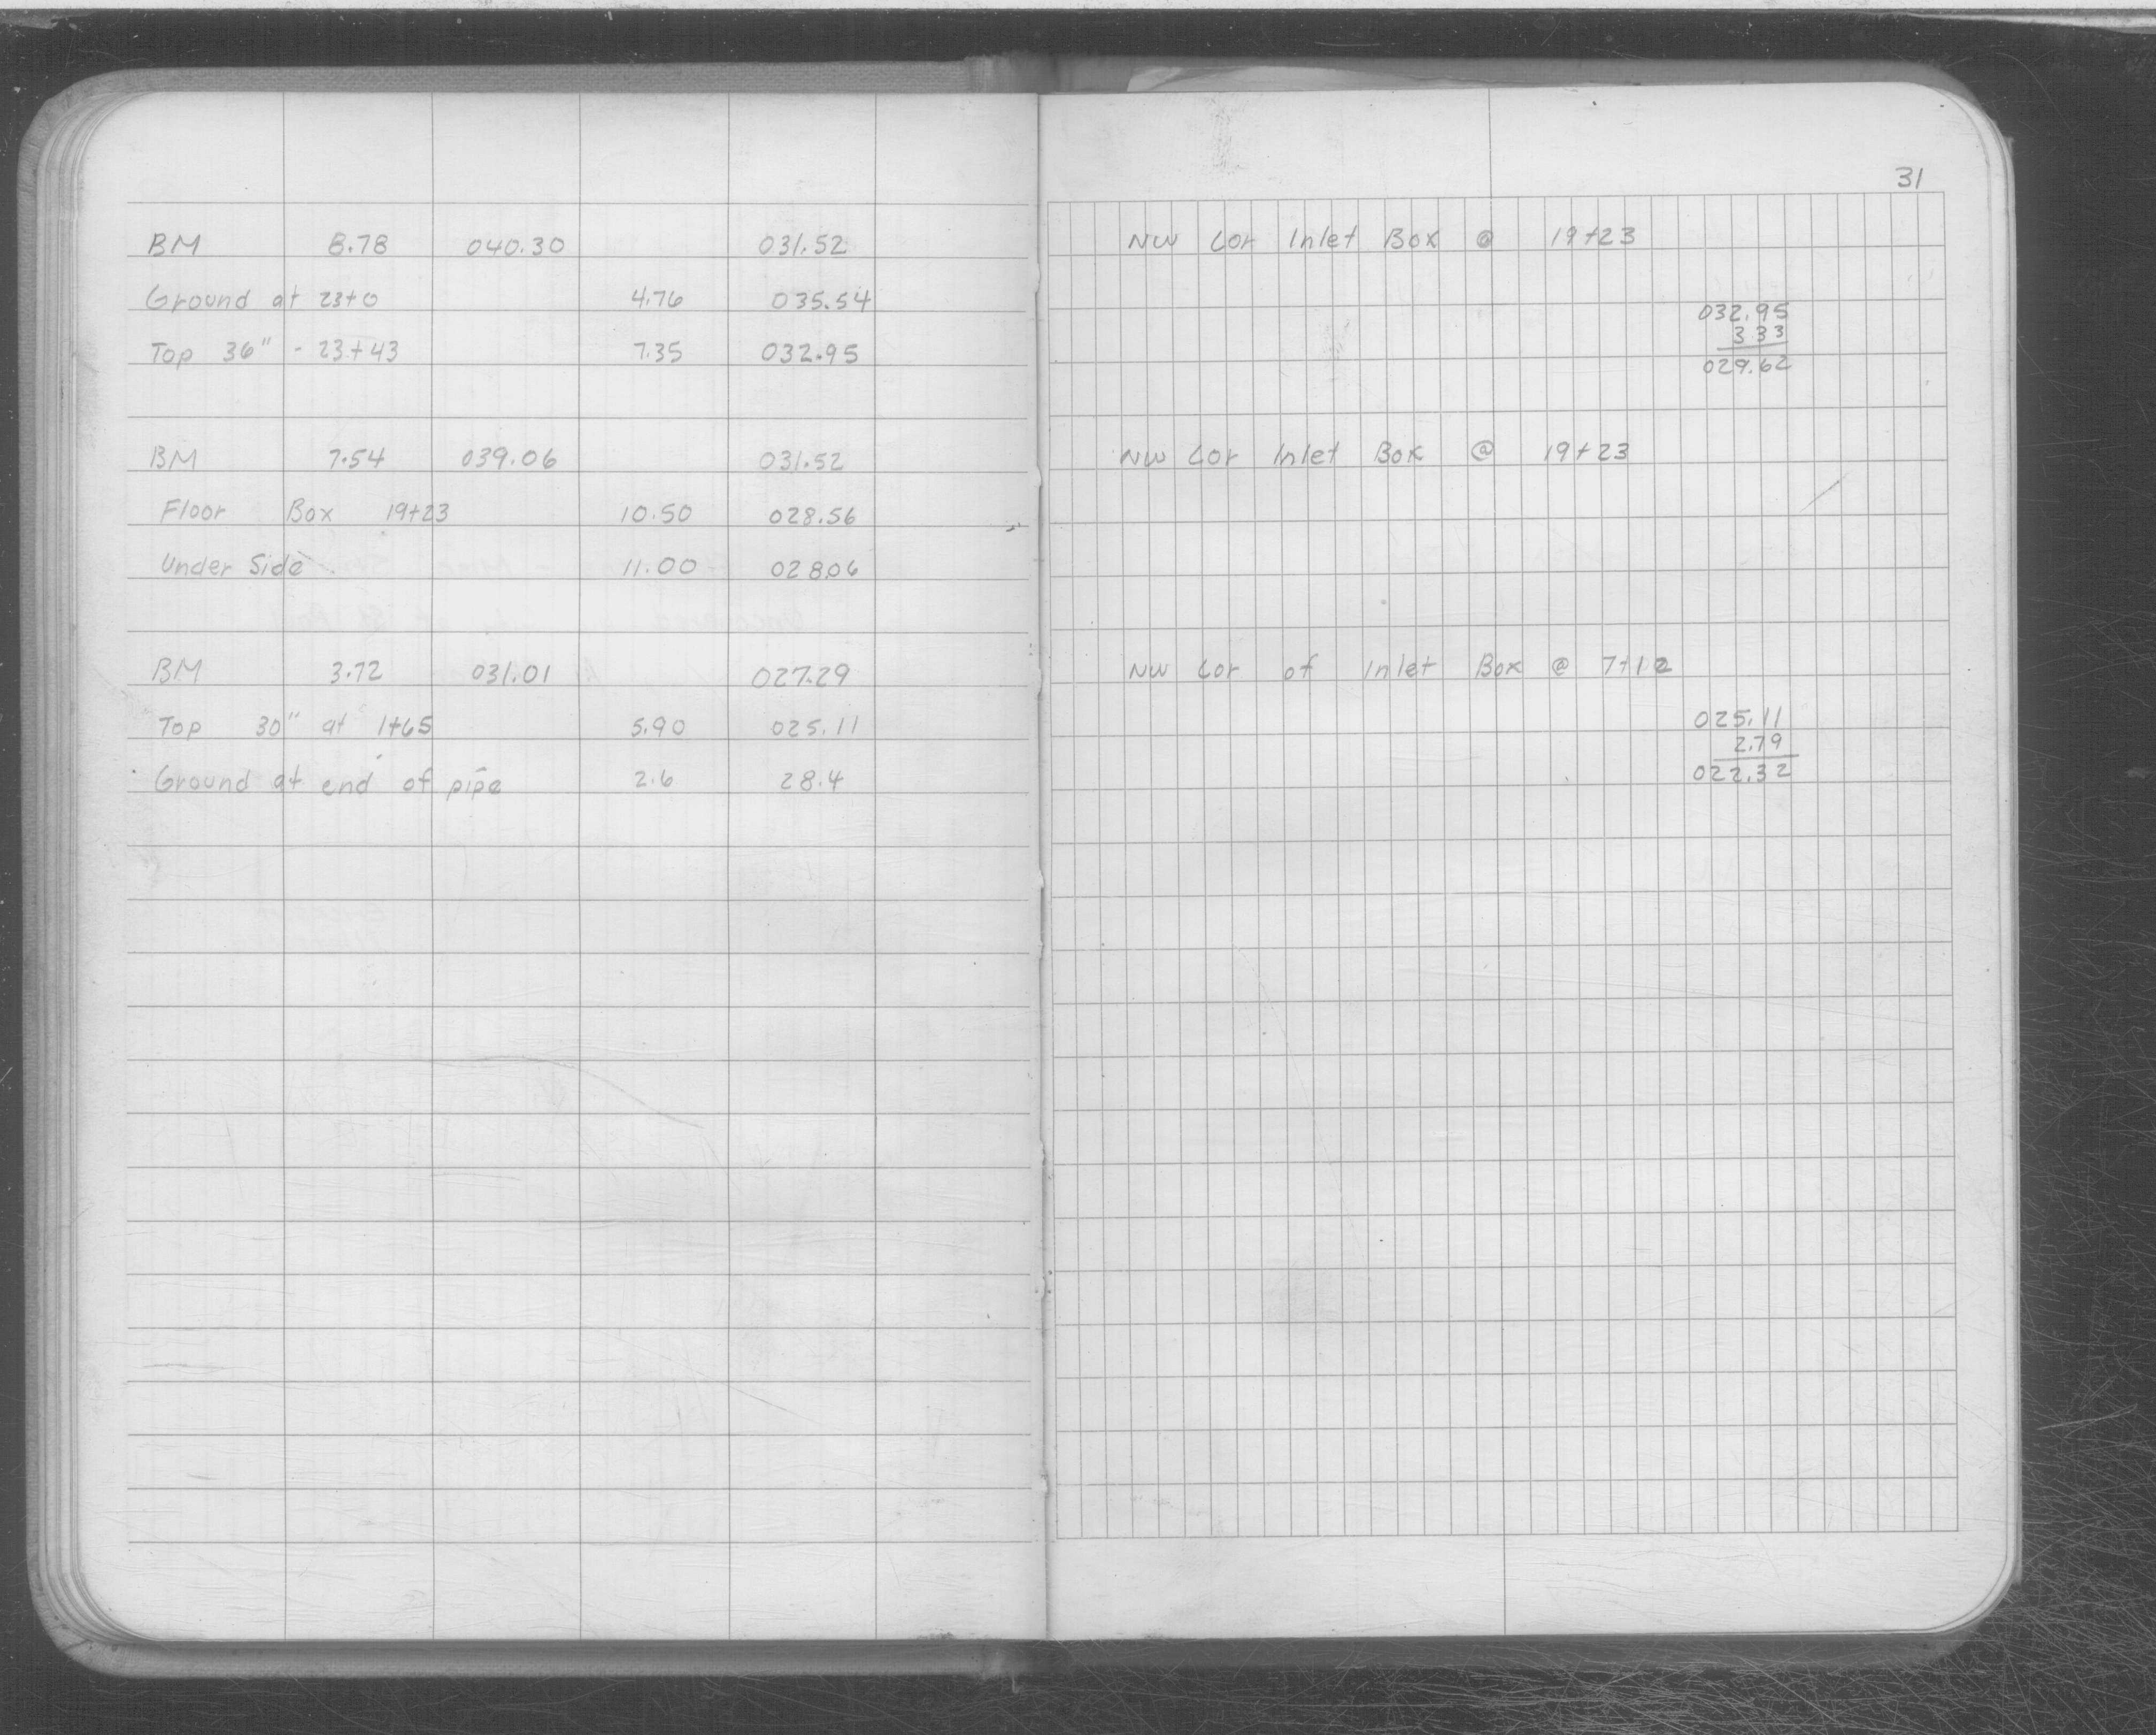 BM 8.78 040.30 031.52
Ground at 23+0 4.76 035.54
Top 36" - 23+43 7.35 032.95
BM 7.54 039.06 031.52
Floor Box 19+23 10.50 028.56
Under Side 11.00 028.06
BM 3.72 031.01 027.29
Top 30" at 1+65 5.90 025.11
Ground at end of pipe 2.6 28.4
31
NW Cor Inlet Box @ 19+23
032.95
333
029.62
NW Cor Inlet Box @ 19+23
NW Cor of Inlet Box @ 7+12
025.11
2.79
022.32